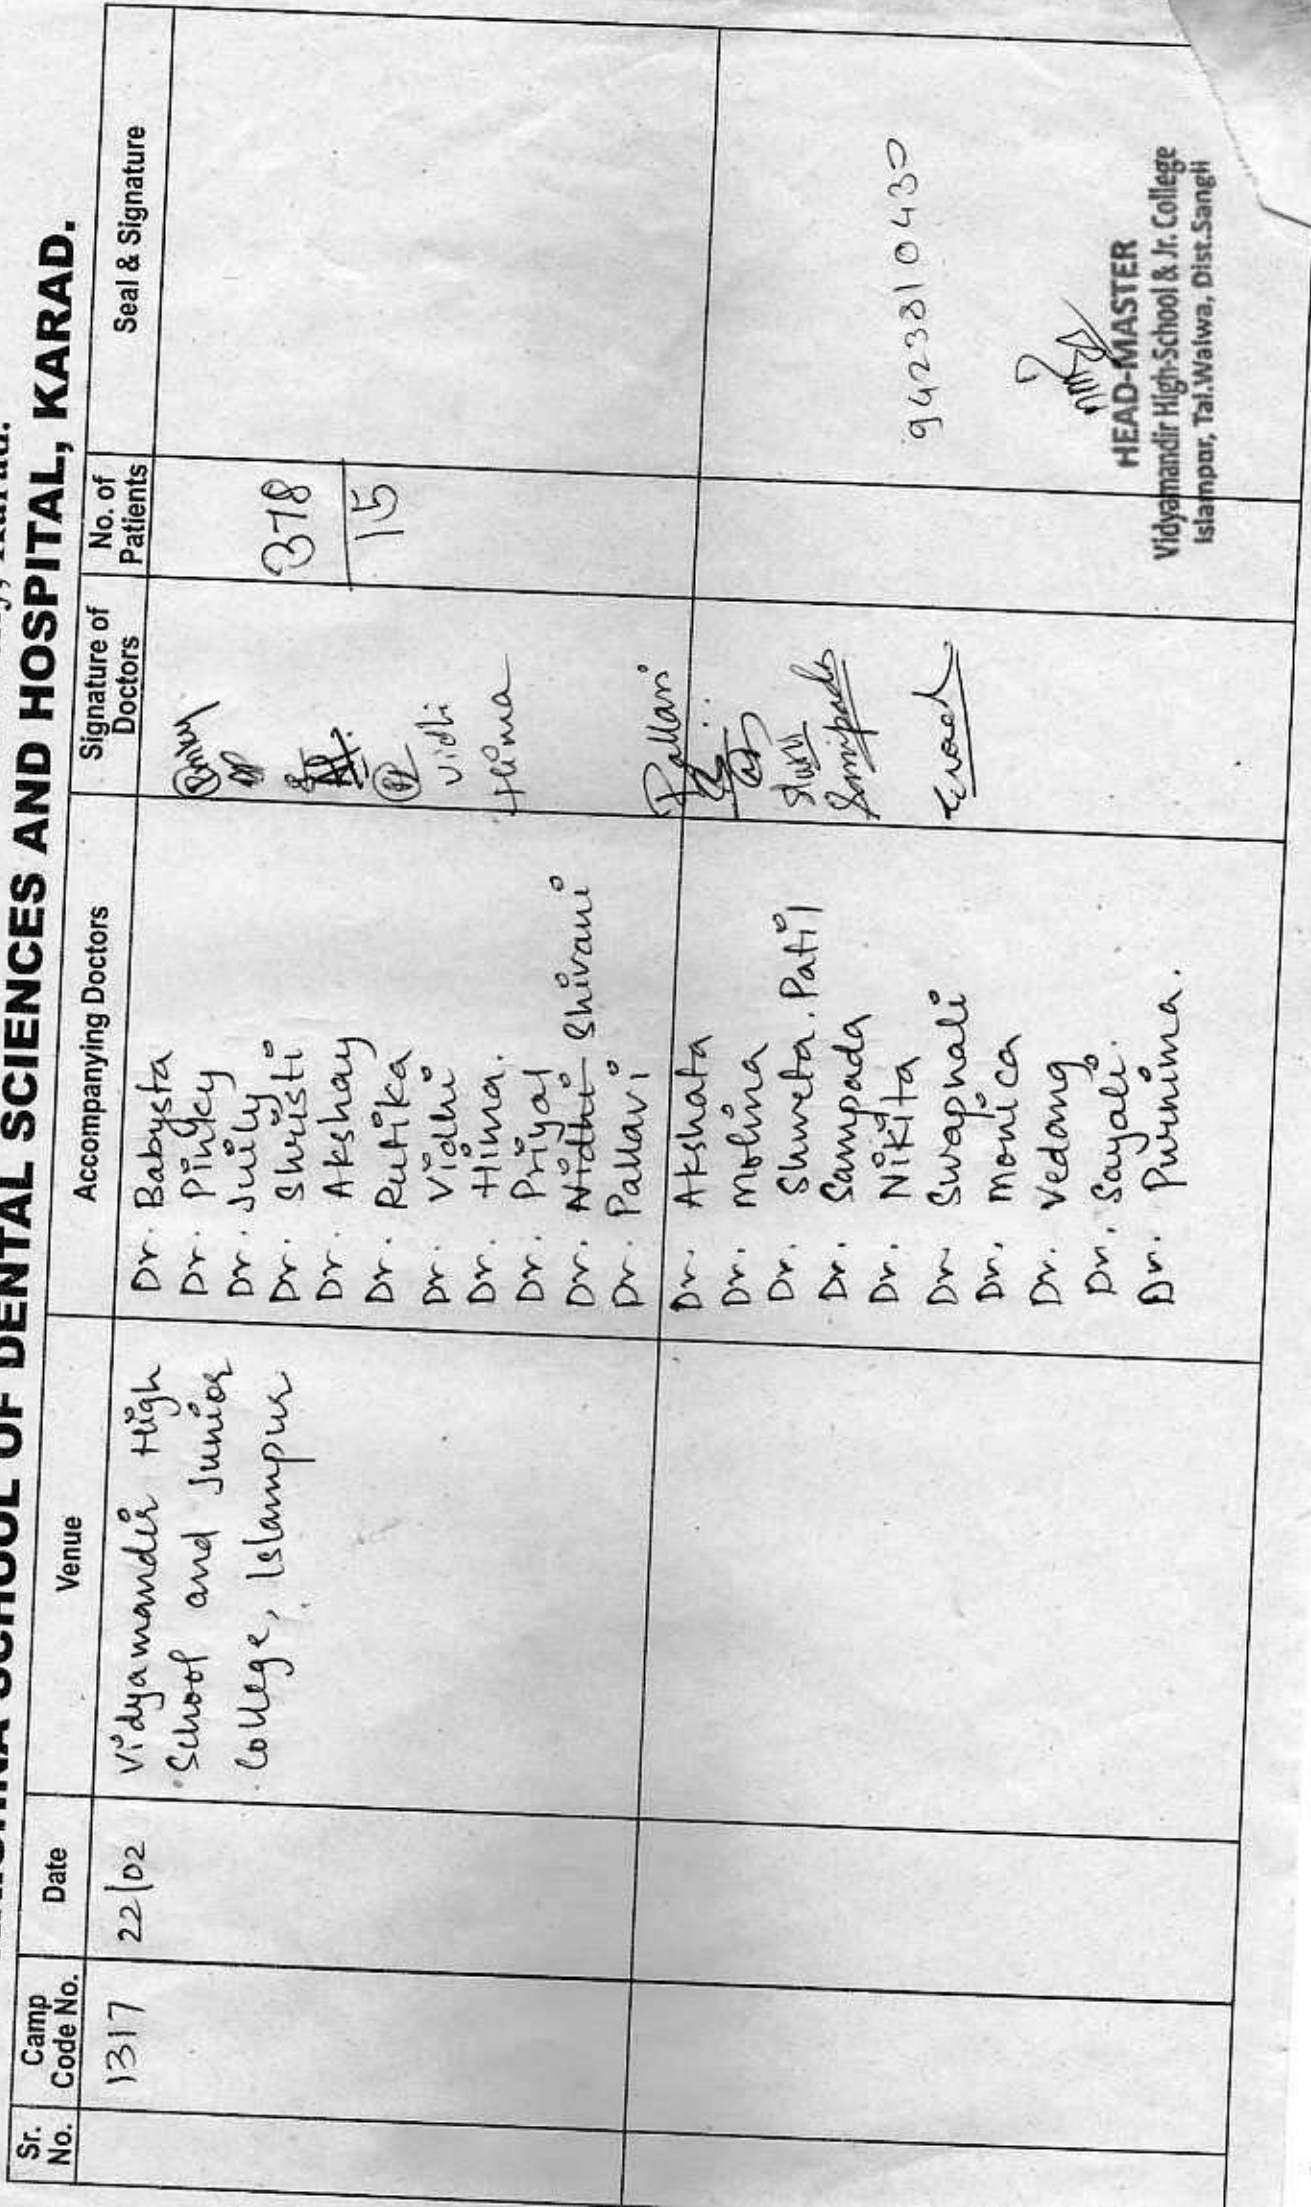 SCHOOL OF DENTAL SCIENCES AND HOSPITAL, KARAD.
Sr. No.
Camp Code No.
Date
Venue
Accompanying Doctors
Signature of Doctors
No. of Patients
Seal & Signature
1317
22/02
Vidyamandir High
School and Junior
College, Islampur
Dr. Babysta
Dr. Pinky
Dr. Juily
Dr. Shristi
Dr. Akshay
Dr. Rutika
Dr. Vidhi
Dr. Hima.
Dr. Priyal
Dr. Nidhi Shivani
Dr. Pallavi
Vidhi
Hima
Pallavi
378
15
Dr. Akshata
Dr. Mohina
Dr. Shweta. Patil
Dr. Sampada
Dr. Nikita
Dr. Swaphali
Dr. Monica
Dr. Vedang
Dr. Sayali.
Dr. Purnima.
Sampada
9423810430
HEAD-MASTER
Vidyamandir High-School & Jr. College
Islampur, Tal.Walwa, Dist.Sangli